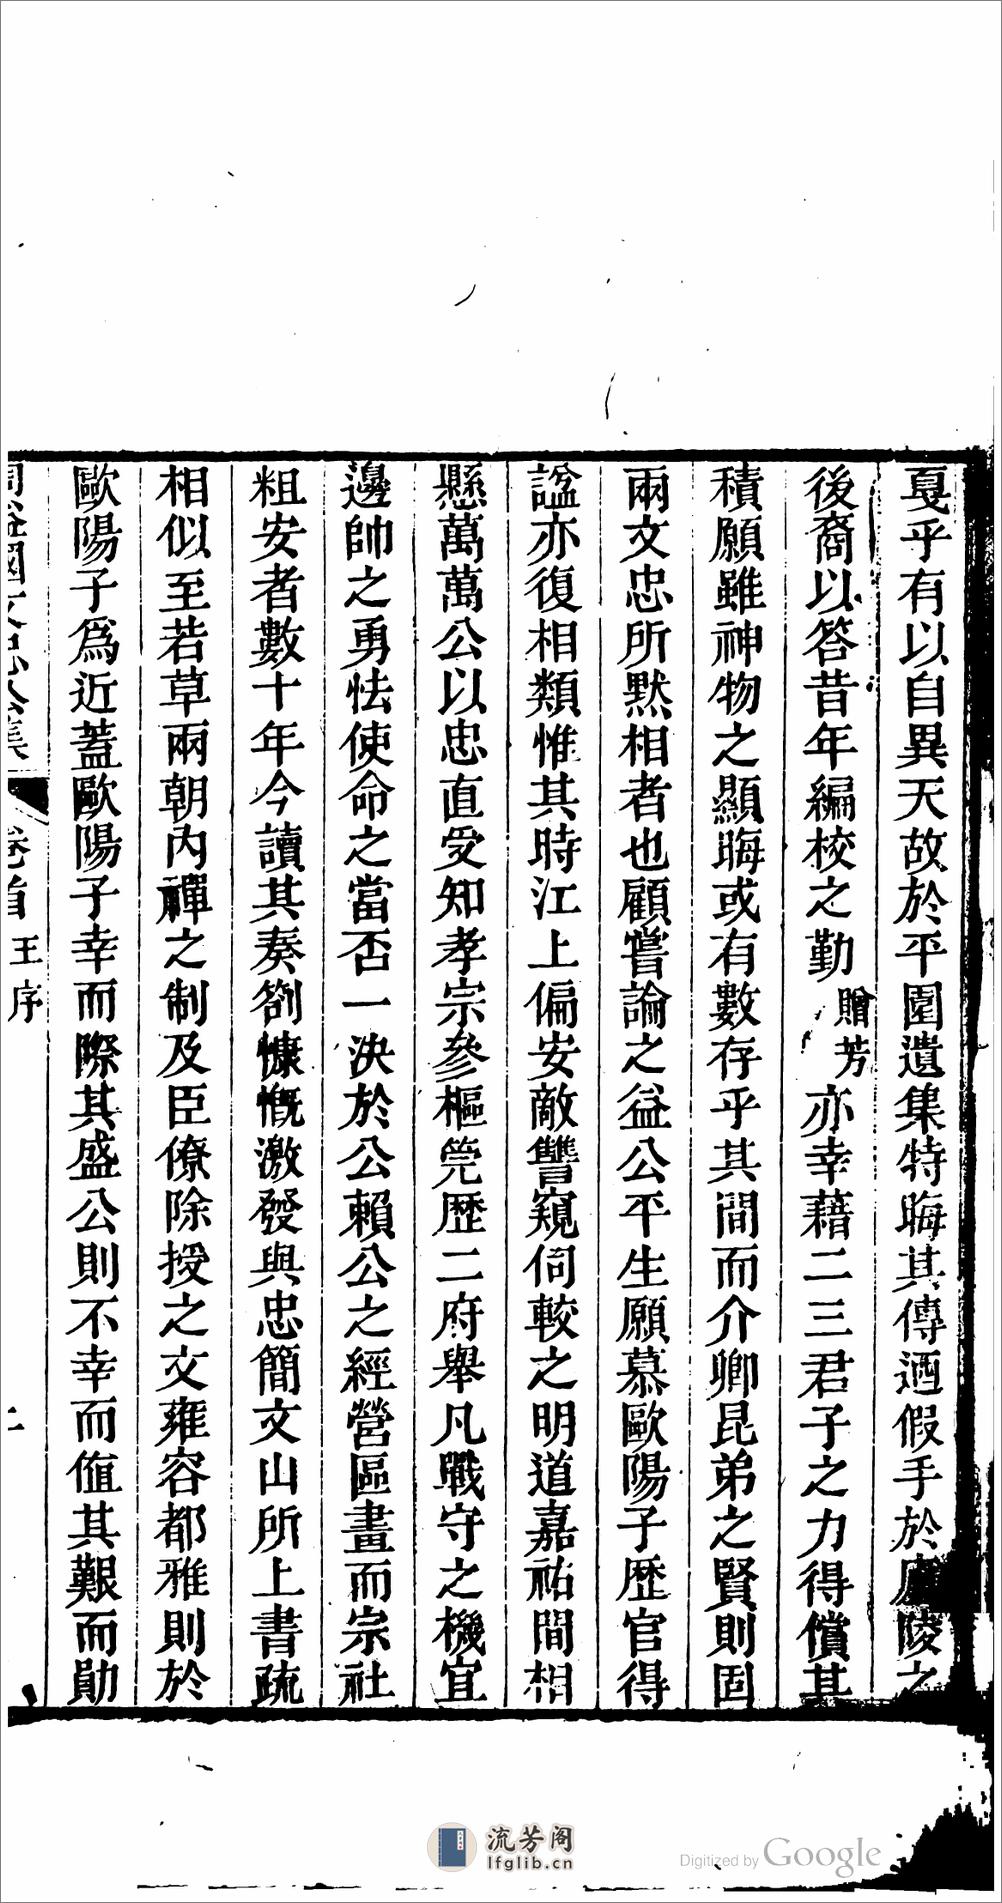 戛乎有以自異天故於平園遺集特晦其傳迺假手於廬陵之
後裔以答昔年編校之勤贈芳亦幸藉二三君子之力得償其
積願雖神物之顯晦或有數存乎其間而介卿昆弟之賢則固
兩文忠所默相者也顧嘗論之益公平生願慕歐陽子歷官得
諡亦復相類惟其時江上偏安敵讐窺伺較之明道嘉祐間相
懸萬萬公以忠直受知孝宗參樞筦歷二府舉凡戰守之機宜
邊帥之勇怯使命之當否一決於公賴公之經營區畫而宗社
粗安者數十年今讀其奏劄慷慨激發與忠簡文山所上書疏
相似至若草兩朝內禪之制及臣僚除授之文雍容都雅則於
歐陽子為近蓋歐陽子幸而際其盛公則不幸而値其艱而勛
周益國文忠公集 卷首 王序
流芳阁
lfglib.cn
Digitized by Google